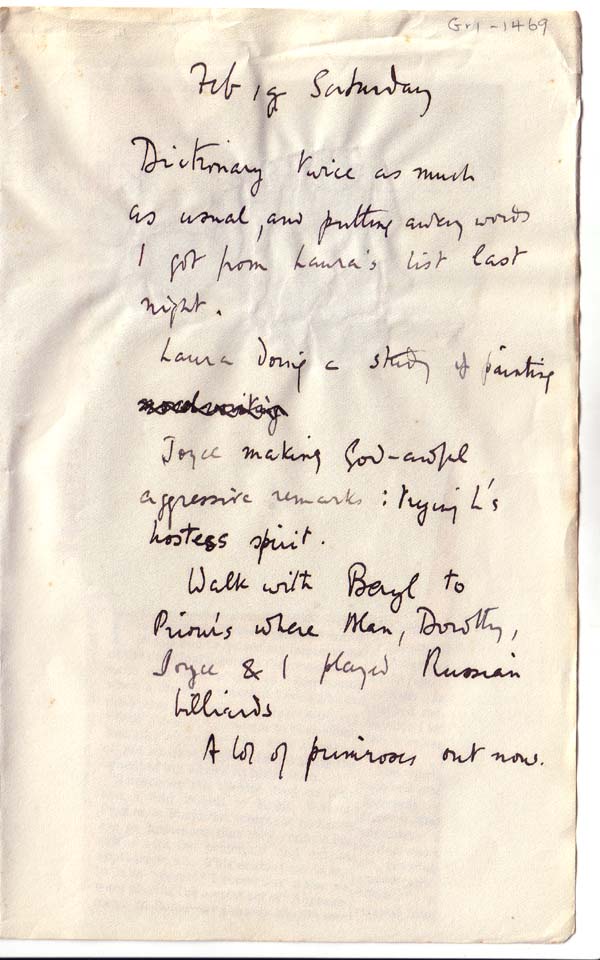 Gr1-1469
Feb 19 Saturday
Dictionary twice as much
as usual, and putting away words
I got from Laura's list last
night.
Laura doing a study of painting
Joyce making God-awful
aggressive remarks : trying L's
hostess spirit.
Walk with Beryl to
Prior's where Alan, Dorothy,
Joyce & I played Russian
billiards
A lot of primroses out now.